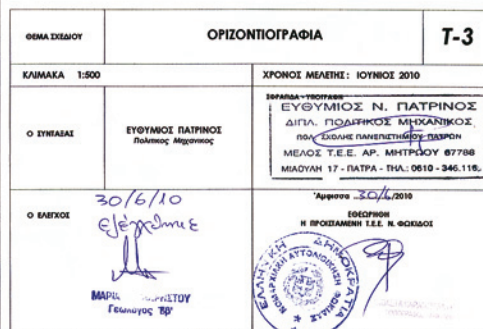 ΘΕΜΑ ΣΧΕΔΙΟΥ
ΟΡΙΖΟΝΤΙΟΓΡΑΦΙΑ
Τ-3
ΚΛΙΜΑΚΑ 1:500
ΧΡΟΝΟΣ ΜΕΛΕΤΗΣ: ΙΟΥΝΙΟΣ 2010
Ο ΣΥΝΤΑΞΑΣ
ΕΥΘΥΜΙΟΣ ΠΑΤΡΙΝΟΣ
Πολιτικος Μηχανικος
ΣΦΡΑΓΙΔΑ - ΥΠΟΓΡΑΦΗ
ΕΥΘΥΜΙΟΣ Ν. ΠΑΤΡΙΝΟΣ
ΔΙΠΛ. ΠΟΛΙΤΙΚΟΣ ΜΗΧΑΝΙΚΟΣ
ΠΟΛ. ΣΧΟΛΗΣ ΠΑΝΕΠΙΣΤΗΜΙΟΥ ΠΑΤΡΩΝ
ΜΕΛΟΣ Τ.Ε.Ε. ΑΡ. ΜΗΤΡΩΟΥ 67788
ΜΙΑΟΥΛΗ 17 - ΠΑΤΡΑ - ΤΗΛ.: 0610 - 346.116
Ο ΕΛΕΓΧΟΣ
30/6/10
ελέγχθηκε
ΜΑΡΙΑ
Γεωλόγος
Άμφισσα 30/6/2010
ΕΘΕΩΡΗΘΗ
Η ΠΡΟΙΣΤΑΜΕΝΗ Τ.Ε.Ε. Ν. ΦΩΚΙΔΟΣ
ΕΛΛΗΝΙΚΗ ΔΗΜΟΚΡΑΤΙΑ
ΝΟΜΑΡΧΙΑΚΗ ΑΥΤΟΔΙΟΙΚΗΣΗ ΦΩΚΙΔΑΣ